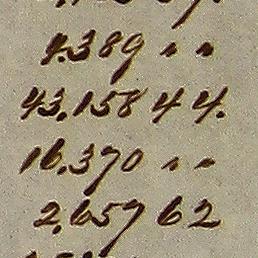 4.389 " "
43.158 44.
16.370 " "
2.657 62